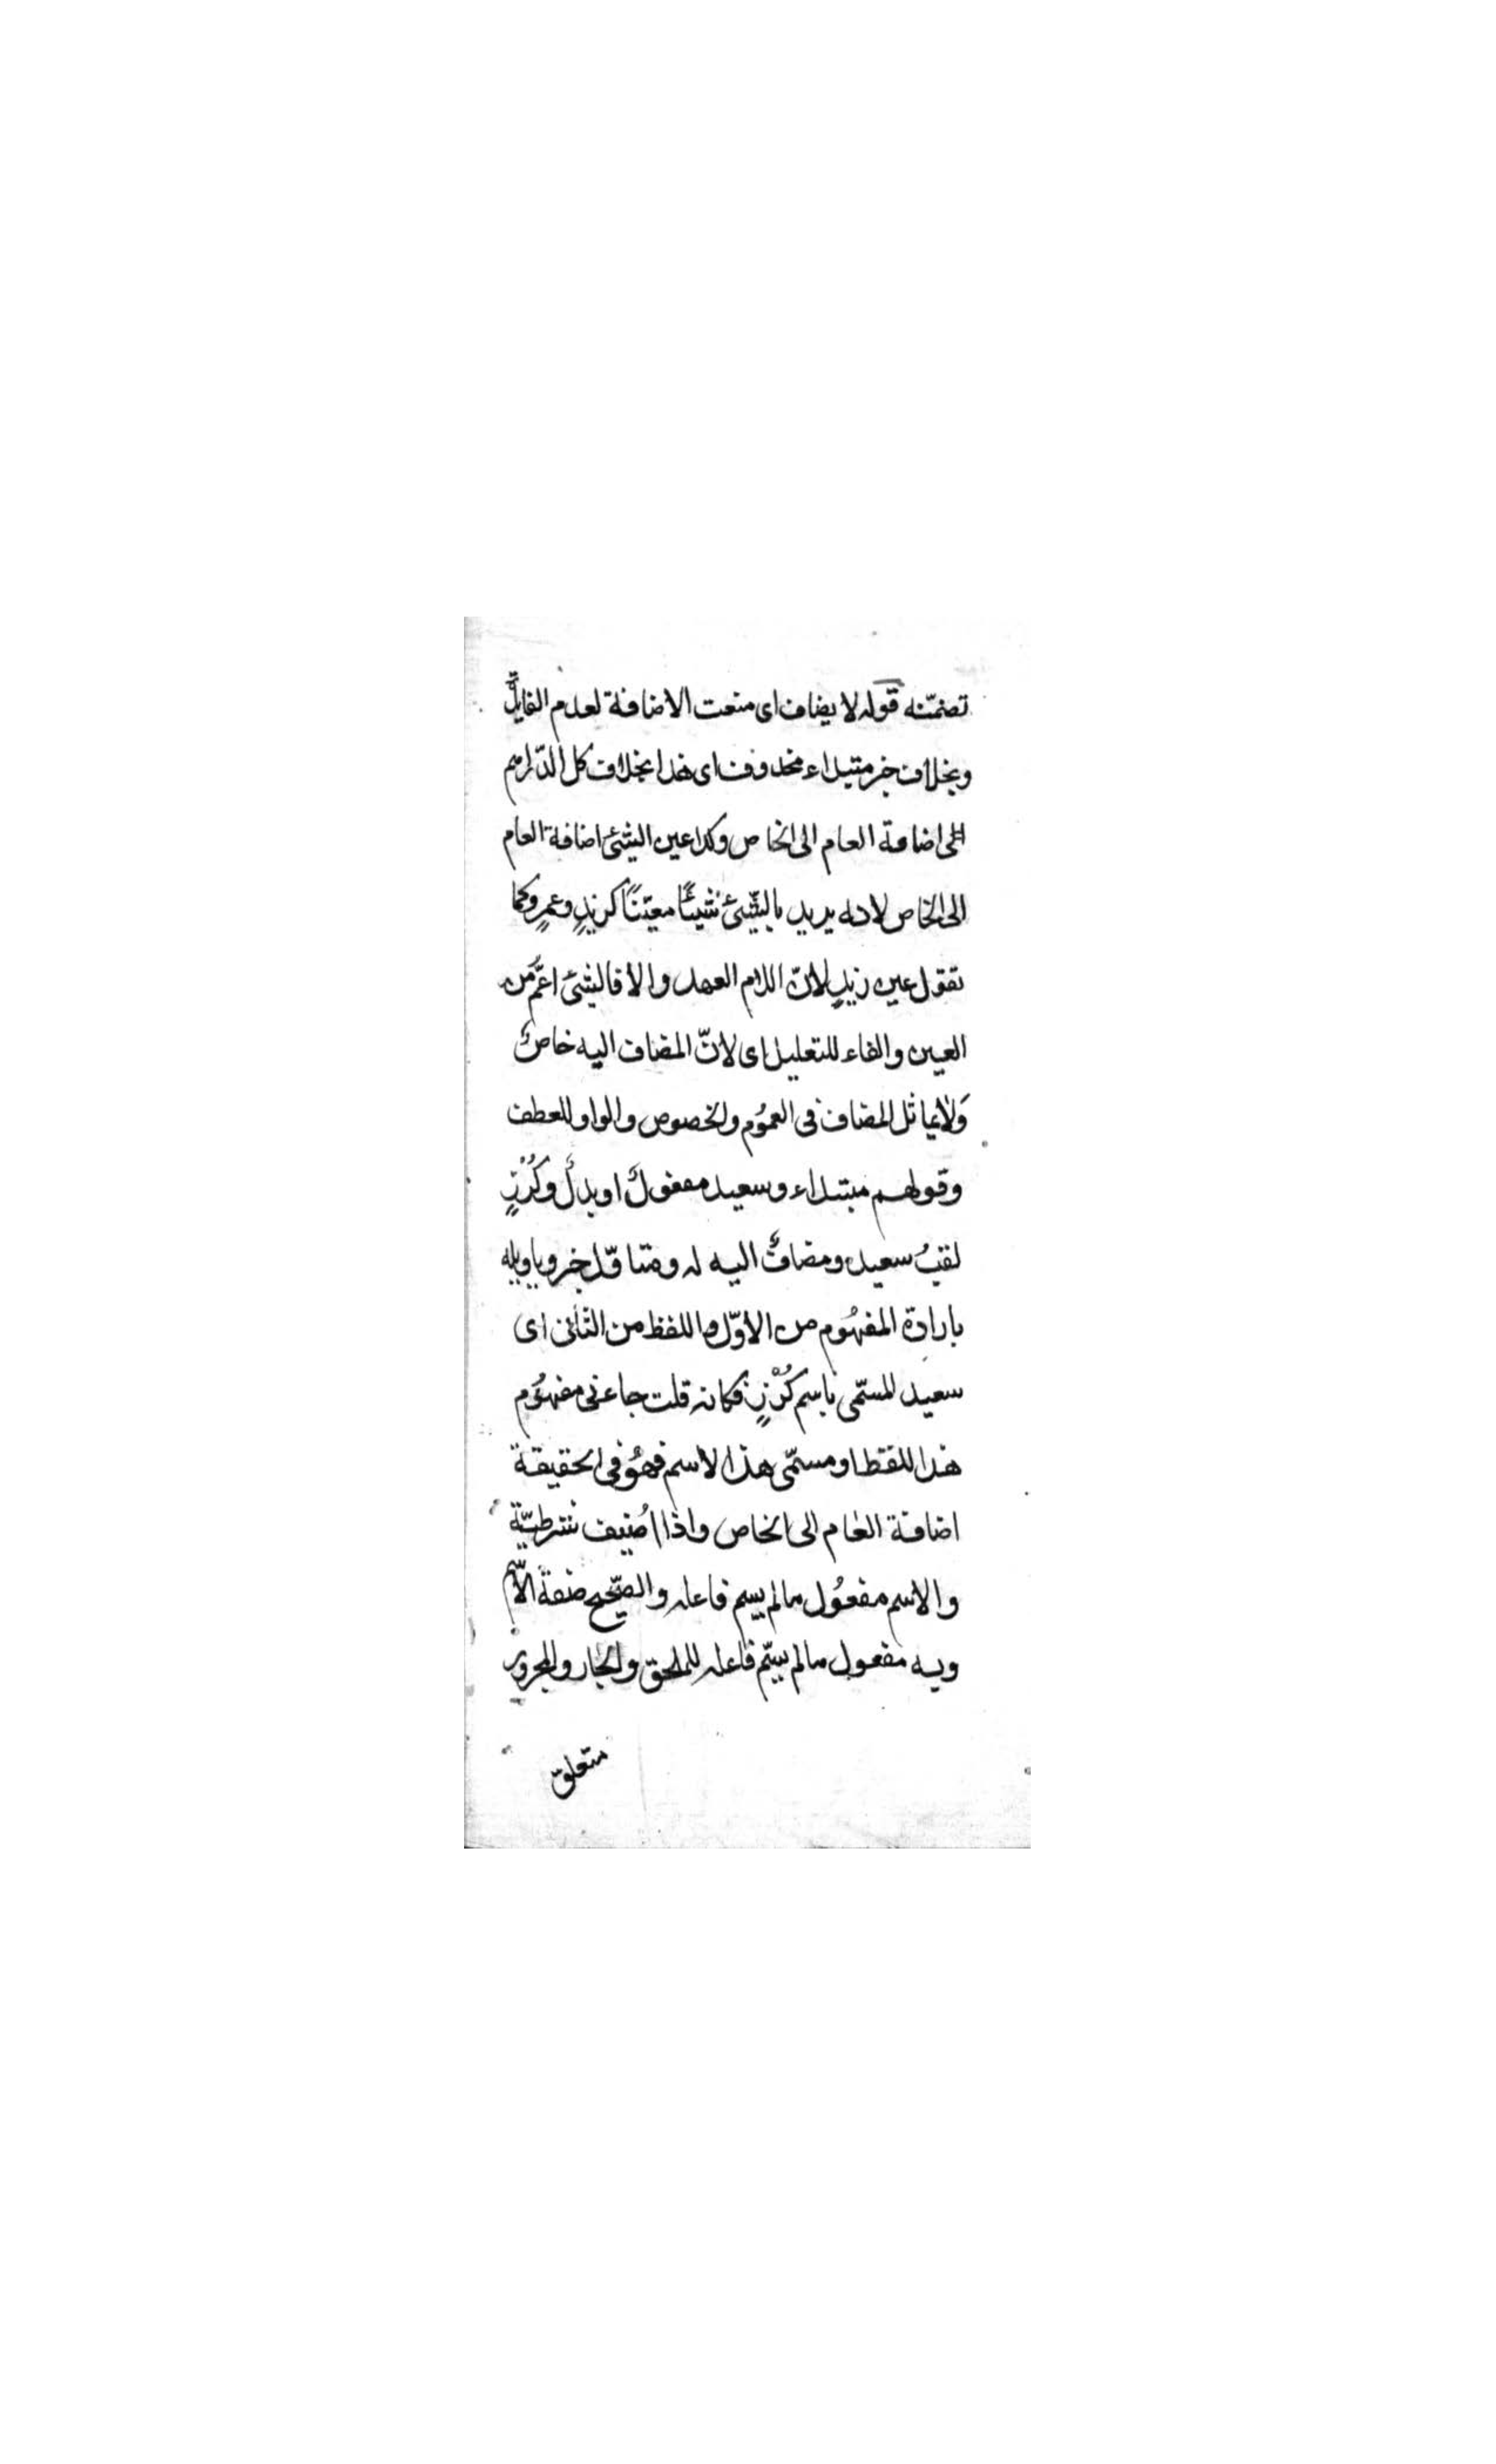 تضمّنه قوله لا يضاف اى منعت الاضافة لعدم الفايدة
وبخلاف خبر مبتداء محذوف اى هذا بخلاف كل الدّراهم
اضافة العام الى الخاص وكذا عين الشئ اضافة العام
الى الخاص لانه يريد بالشّئ شيئًا معيّنًا كزيدٍ وعمرٍو كما
تقول عين زيدٍ لانّ اللام العهد والا فالشئ اعمّ من
العين والفاء للتعليل اى لانّ المضاف اليه خاصٌ
وَلا يماثل المضاف فى العمُوم والخصوص والواو للعطف
وقولهم مبتداء وسعيد مفعولٌ او بدلٌ وكُرْزٍ
لقبُ سعيد ومضافٌ اليه له ومتاوّل خبر وياويله
بارادة المفهُوم من الاوّل واللفظ من الثّانى اى
سعيد المسمّى باسم كُرْزٍ فكانه قلت جاءنى مفهُوم
هذا اللفظ او مسمّى هذا الاسم فهُو فى الحقيقة
اضافة العام الى الخاص واذا اُضيف شرطيّة
والاسم مفعُول مالم يسم فاعله والصّحيح صفة الاسم
وبه مفعول مالم يسّم فاعله للملحق والجار والمجرور
متعلق